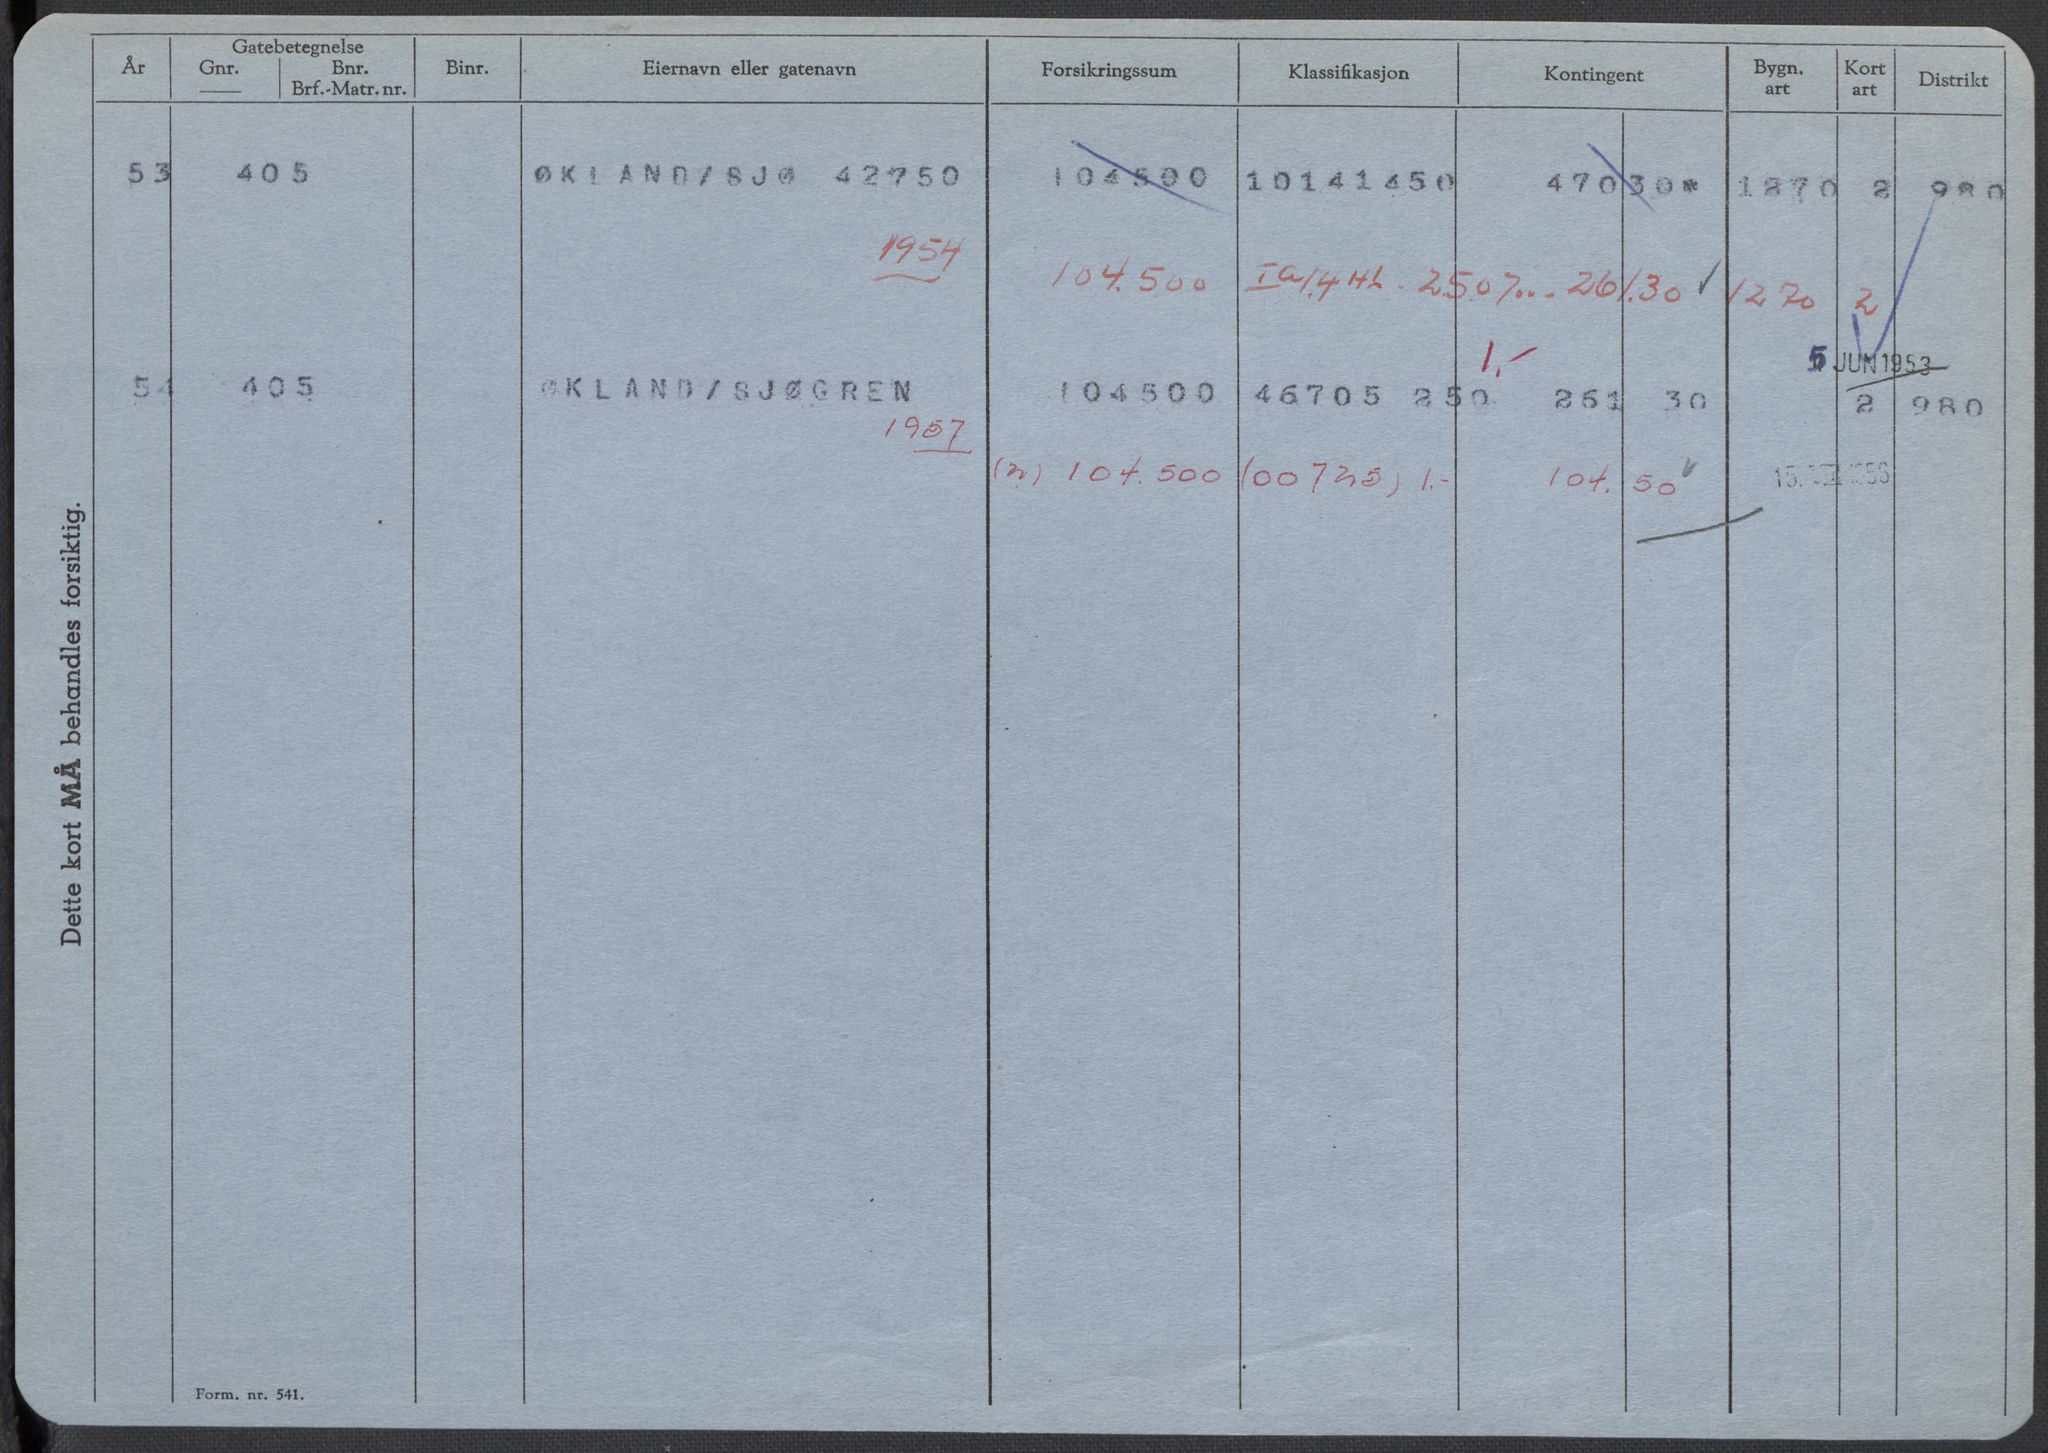 År Gatebetegnelse Gnr. Bnr. Brf.-Matr. nr. Binr. Eiernavn eller gatenavn Forsikringssum Klassifikasjon Kontingent Bygn. art Kort art Distrikt
53 405 ØKLAND/SJØ 42750 104500 10141450 47030* 1270 2 980
1954 104.500 Ia/1.4 HL. 2.50 261.30 1270 2
1.- 5 JUN 1953
54 405 ØKLAND/SJØGREN 104500 46705 250 261 30 2 980
1957
(n) 104.500 (00725) 1.- 104.50 15.
Dette kort MÅ behandles forsiktig.
Form. nr. 541.